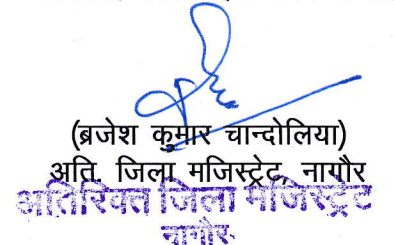 (ब्रजेश कुमार चान्दोलिया)
अति. जिला मजिस्ट्रेट, नागौर
अतिरिक्त जिला मजिस्ट्रेट
नागौर